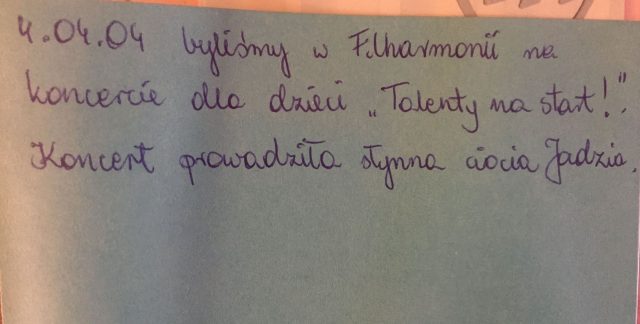 4.04.04 byliśmy w Filharmonii na
koncercie dla dzieci „Talenty na start!".
Koncert prowadziła słynna ciocia Jadzia.